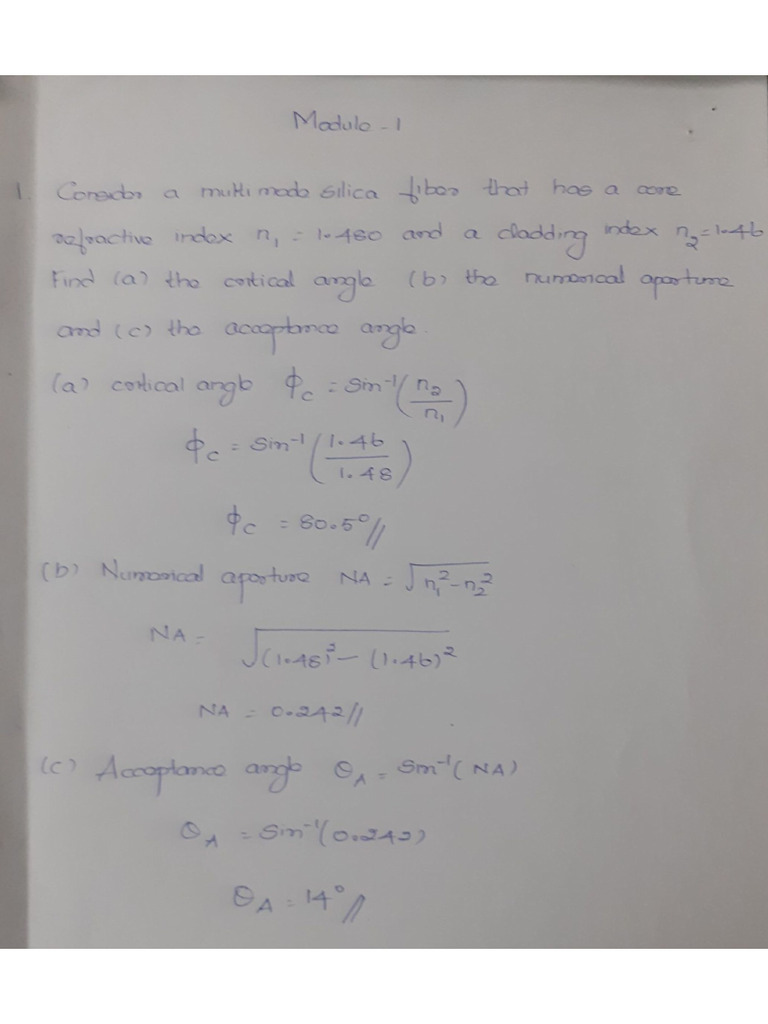 Module - 1
1. Consider a multimode silica fiber that has a core
refractive index n₁ = 1.480 and a cladding index n₂ = 1.46
Find (a) the critical angle (b) the numerical aperture
and (c) the acceptance angle.
(a) critical angle ϕc = sin⁻¹(n₂/n₁)
ϕc = sin⁻¹(1.46/1.48)
ϕc = 80.5°//
(b) Numerical aperture NA = √(n₁² - n₂²)
NA = √((1.48)² - (1.46)²)
NA = 0.242//
(c) Acceptance angle θA = sin⁻¹(NA)
θA = sin⁻¹(0.242)
θA = 14°//